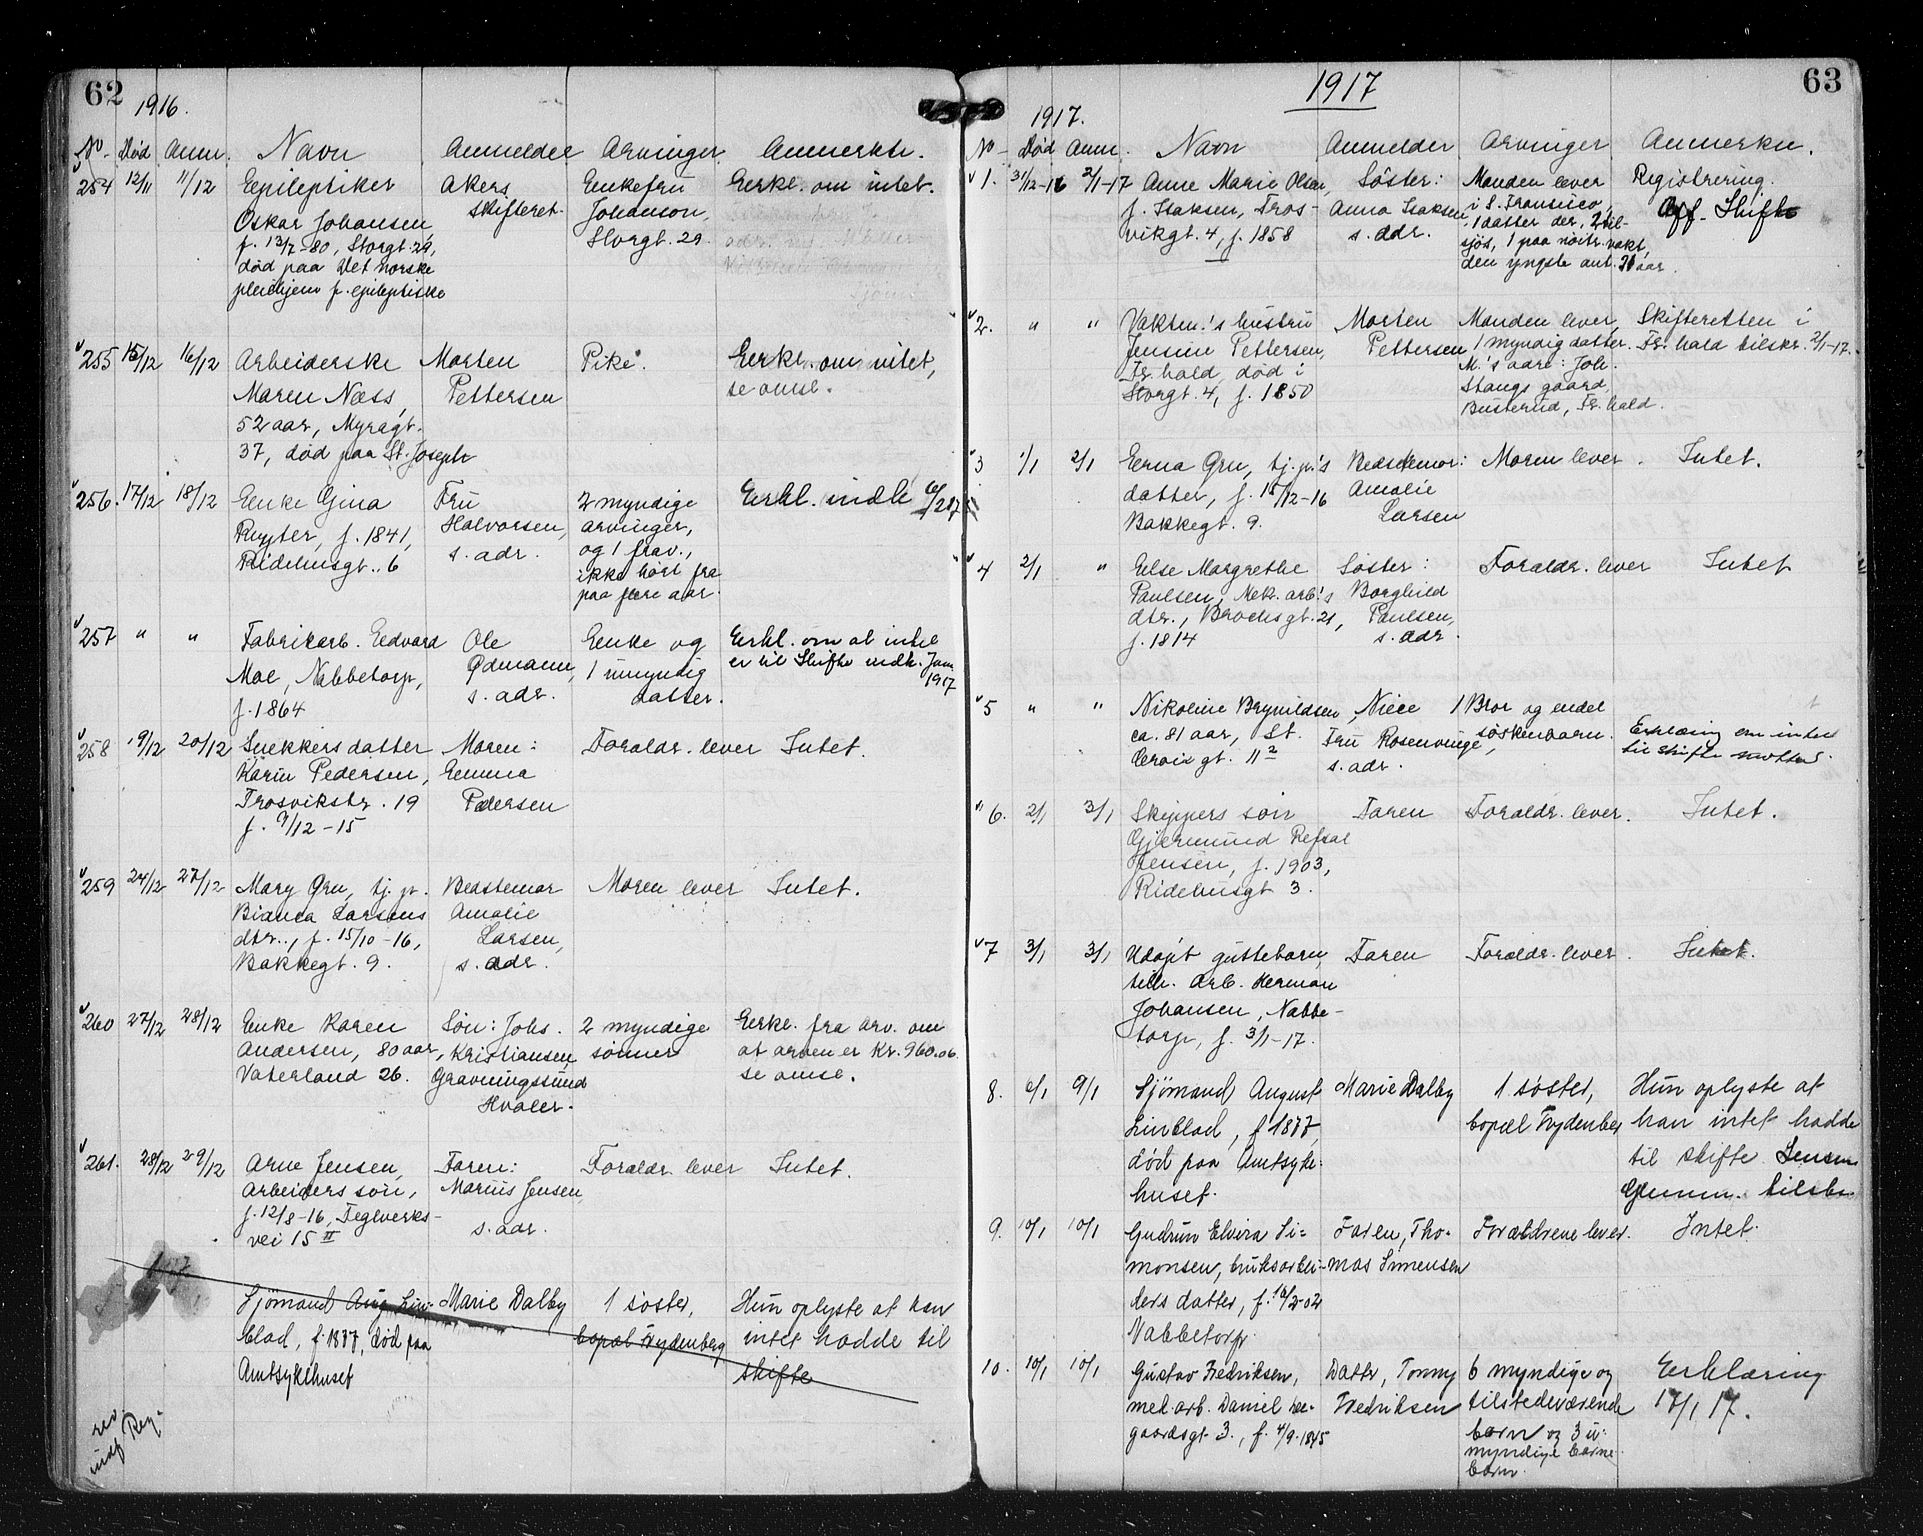 62
1916.
No - Død Anm. Navn Anmelder Arvinger Anmerkn.
254 12/11 11/12 Epileptiker
Oskar Johansen,
f. 13/7-80, Storgt. 29,
død paa Det norske
pleiehjem f. epileptiske
Akers
Skifteret.
Enkefru
Johanson,
Storgt. 29.
Erkl. om intet.
255 15/12 16/12 Arbeiderske
Maren Næss,
52 aar, Myragt.
37, død paa St. Joseph
Morten
Pettersen
Pike.
Erkl. om intet,
se omsl.
256. 17/12 18/12 Enke Gina
Ruyter, f. 1841,
Ridehusgt. 6
Fru
Halvorsen,
s. adr.
2 myndige
arvinger,
og 1 frav.,
ikke hørt fra
paa flere aar.
Erkl. indk.
257 " " Fabrikarb. Edvard
Moe, Nabbetorp,
f. 1864
Ole
Ødmann,
s. adr.
Enke og
1 umyndig
datter.
Erkl. om at intet
er til Skifte indk. Jan.
1917
258 19/12 20/12 Snekkers datter
Karin Pedersen,
Trosvikstr. 19
f. 9/12-15
Moren:
Emma
Pedersen
Foraldr. lever
Intet.
259 24/12 27/12 Mary Gru, tj. p.
Bianca Larsens
dtr., f. 15/10-16,
Bakkegt. 9.
Bedstemor
Amalie
Larsen,
s. adr.
Moren lever
Intet.
260 27/12 28/12 Enke Karen
Andersen, 80 aar,
Vaterland 26.
Søn: Johs.
Kristiansen,
Gravningssund
Hvaler.
2 myndige
sønner
Erkl. fra arv. om
at arven er Kr. 960.06.
se omsl.
261. 28/12 29/12 Arne Jensen,
Arbeiders søn,
f. 12/8-16, Teglverks-
vei 15 II
Faren:
Marius Jensen,
s. adr.
Foraldr. lever
Intet.
Sjømand Aug. Lin-
blad, f. 1877, død paa
Amtsykehuset
Marie Dalby
1 søster,
bopæl Frydenberg
Hun oplyste at han
intet hadde til
skifte
63
1917
1917.
No - Død Anm. Navn Anmelder Arvinger Anmerkn.
1. 31/12-16 2/1-17 Anne Marie Olsen,
f. Isaksen, Tros-
vikgt. 4, f. 1858
Søster:
Anna Isaksen
s. adr.
Manden lever
i S. Fransisco,
1 datter der, 2 til-
sjøs, 1 paa nøitr. vakt,
den yngste ant. 21 aar.
Registrering.
Off. Skifte
2. " " Vaktm.'s hustru
Jensine Pettersen,
Fr.hald, død i
Storgt. 4, f. 1850
Morten
Pettersen
Manden lever,
1 myndig datter.
M.'s adr.: Joh.
Stangs gaard,
Busterud, Fr.hald.
Skifteretten i
Fr.hald tilskr. 2/1-17.
3 1/1 2/1 Erna Gru, tj. p.'s
datter, f. 15/12-16
Bakkegt. 9.
Bedstemor:
Amalie
Larsen
Moren lever.
Intet.
4 2/1 " Else Margrethe
Paulsen, Mek. arb.'s
dtr., Brochsgt. 21,
f. 1814
Søster:
Borghild
Paulsen,
s. adr.
Foraldr. lever
Intet
5 " " Nikoline Brynildsen,
ca. 81 aar, St.
Croix gt. 11 2
Niece
Fru Rosenvinge,
s. adr.
1 Bror og endel
søskenbarn.
Erklæring om intet
til skifte mottat.
6. 2/1 3/1 Skippers søn
Gjermund Refsal
Jensen, f. 1903,
Ridehusgt 3.
Faren
Foraldr. lever.
Intet.
7 3/1 3/1 Udøpt guttebarn,
tilh. arb. Herman
Johansen, Nabbe-
torp, f. 3/1-17.
Faren
Forældr. lever.
Intet.
8. 6/1 9/1 Sjømand August
Linblad, f. 1877,
død paa Amtsyke-
huset.
Marie Dalby
1 søster,
bopæl Frydenber
Hun oplyste at
han intet hadde
til skifte
9. 10/1 10/1 Gudrun Elvira Si-
monsen, bruksarbei-
ders datter, f. 16/2-02
Nabbetorp.
Faren, Tho-
mas Simensen
Forældrene lever.
Intet.
10. 10/1 10/1 Gustav Fredriksen,
mek. arb. Daniel Le-
gaardsgt. 3., f. 4/9-1845
Datter, Tonny
Fredriksen
6 myndige og
tilstedeværende
børn og 3 u-
myndige barne-
børn.
Erklæring
17/1 17.